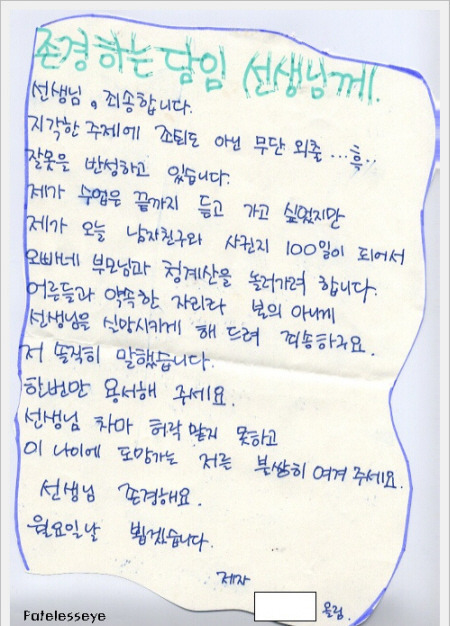 존경하는 담임 선생님께.
선생님, 죄송합니다.
지각한 주제에 조퇴도 아닌 무단 외출 ... 흑..
잘못을 반성하고 있습니다.
제가 수업은 끝까지 듣고 가고 싶었지만
제가 오늘 남자친구와 사귄지 100일이 되어서
오빠네 부모님과 청계산을 놀러가려 합니다.
어른들과 약속한 자리라 본의 아니게
선생님을 실망시키게 해 드려 죄송하구요.
저 솔직히 말했습니다.
한번만 용서해 주세요.
선생님 차마 허락 맡지 못하고
이 나이에 도망가는 저를 불쌍히 여겨 주세요.
선생님 존경해요.
월요일날 뵙겠습니다.
제자
올림.
Fatelesseye